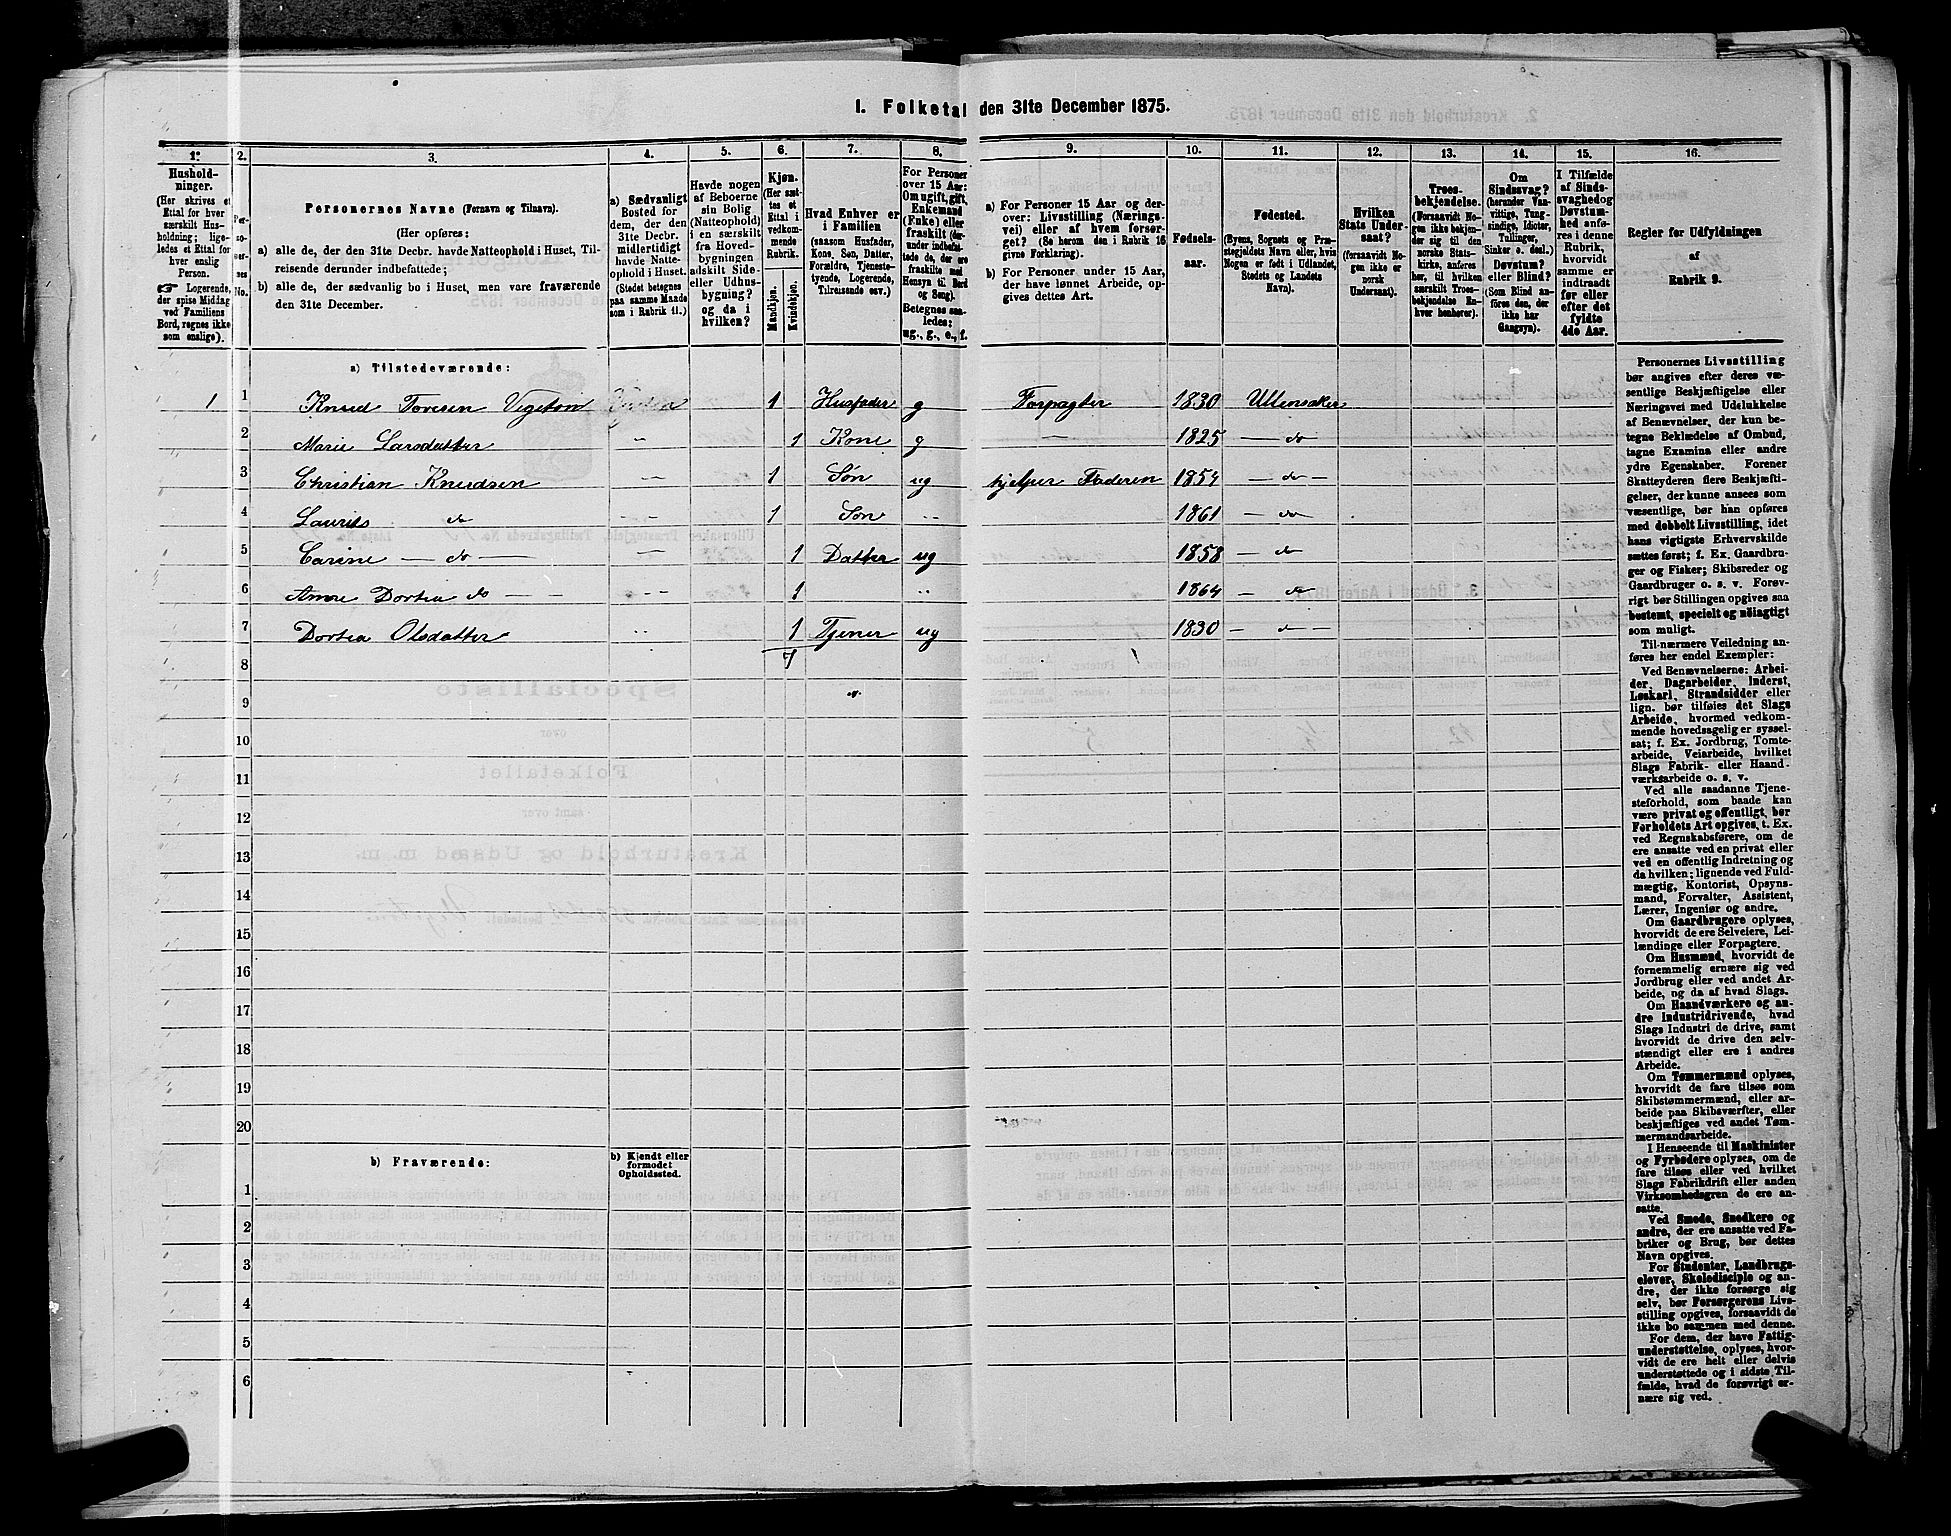 1. Folketal den 31te December 1875.
1. 2. 3. 4. 5. 6. 7. 8. 9. 10. 11. 12. 13. 14. 15. 16.
Hushold-
ninger.
(Her skrives et
Ettal for hver
særskilt Hus-
holdning; lige-
ledes et Ettal for
hver enslig
Person.
☞ Logerende,
der spise Middag
ved Familiens
Bord, regnes ikke
som enslige).
Per-
so-
ner-
nes
No.
Personernes Navne (Fornavn og Tilnavn).
(Her opføres:
a) alle de, der den 31te Decbr. havde Natteophold i Huset, Til-
reisende derunder indbefattede;
b) alle de, der sædvanlig bo i Huset, men vare fraværende
den 31te December.
a) Sædvanligt
Bosted for
dem, der den
31te Decbr.
midlertidigt
havde Natte-
ophold i Huset.
(Stedet betegnes
paa samme Maade
som i Rubrik 11.)
Havde nogen
af Beboerne
sin Bolig
(Natteophold)
i en særskilt
fra Hoved-
bygningen
adskilt Side-
eller Udhus-
bygning?
og da i
hvilken?
Kjøn.
(Her sæt-
tes et
Ettal i
vedkom-
mende
Rubrik.
Mandkjøn.
Kvindekjøn.
Hvad Enhver er
i Familien
(saasom Husfader,
Kone, Søn, Datter,
Forældre, Tjeneste-
tyende, Logerende,
Tilreisende osv.)
For Personer
over 15 Aar:
Om ugift, gift,
Enkemand
(Enke) eller
fraskilt (der-
under indbefat-
tede de, der ere
fraskilte med
Hensyn til Bord
og Seng).
Betegnes saa-
ledes:
ug., g., e., f.
a) For Personer 15 Aar og der-
over: Livsstilling (Nærings-
vei) eller af hvem forsør-
get? (Se herom den i Rubrik 16
givne Forklaring).
b) For Personer under 15 Aar,
der have lønnet Arbeide, op-
gives dettes Art.
Fødsels-
aar.
Fødested.
(Byens, Sognets og Præ-
stegjeldets Navn eller, hvis
Nogen er født i Udlandet,
Stedets og Landets
Navn).
Hvilken
Stats Under-
saat?
(forsaavidt No-
gen ikke er
norsk
Undersaat).
Troes-
bekjendelse.
(Forsaavidt No-
gen ikke bekjen-
der sig til den
norske Stats-
kirke, anføres
her, til hvilken
særskilt Troes-
bekjendelse En-
hver henhører).
Om
Sindssvag?
(herunder Van-
vittige, Tung-
sindige, Idioter,
Tullinger,
Sinker o. desl.)
Døvstum?
eller Blind?
(Som Blind an-
føres den, der
ikke har
Gangsyn).
I Tilfælde
af Sinds-
svaghed og
Døvstum-
hed anfø-
res i denne
Rubrik,
hvorvidt
samme er
indtraadt
før eller
efter det
fyldte
4de Aar.
Regler for Udfyldningen
af
Rubrik 9.
a) Tilstedeværende:
1 1 Knud Toresen 1 Husfader g Forpagter 1830 Ullensaker
2 Marie Larsdatter " 1 Kone g — 1825 — do
3 Christian Knudsen " 1 Søn ug hjelper Faderen 1854 — do —
4 Laurits do " 1 Søn " 1861 — do
5 Carine — do — " 1 Datter ug 1858 — do
6 Anne Dortea do — " 1 " 1864 — do
7 Dortea Olsdatter " 1 Tjener ug 1830 — do —
8 7
9
10
11
12
13
14
15
16
17
18
19
20
b) Fraværende:
b) Kjendt eller
formodet
Opholdssted.
1
2
3
4
5
6
Personernes Livsstilling
bør angives efter deres væ-
sentlige Beskjæftigelse eller
Næringsvei med Udelukkelse
af Benævnelser, der kun be-
tegne Beklædelse af Ombud,
tagne Examina eller andre
ydre Egenskaber. Forener
Skatteyderen flere Beskjæfti-
gelser, der kunne ansees som
væsentlige, bør han opføres
med dobbelt Livsstilling, idet
hans vigtigste Erhvervskilde
sættes først; f. Ex. Gaardbru-
ger og Fisker; Skibsreder og
Gaardbruger o. s. v. Forøv-
rigt bør Stillingen opgives saa
bestemt, specielt og nøiagtigt
som muligt.
Til nærmere Veiledning an-
føres her endel Exempler:
Ved Benævnelserne: Arbei-
der, Dagarbeider, Inderst,
Løskarl, Strandsidder eller
lign. bør tilføies det Slags
Arbeide, hvormed vedkom-
mende hovedsagelig er syssel-
sat; f. Ex. Jordbrug, Tomte-
arbeide, Veiarbeide, hvilket
Slags Fabrik- eller Haand-
værksarbeide o. s. v.
Ved alle saadanne Tjene-
steforhold, som baade kan
være privat og offentligt, bør
Forholdets Art opgives, t. Ex.
ved Regnskabsførere, om de
ere ansatte ved en privat eller
ved en offentlig Indretning og
da hvilken; lignende ved Fuld-
mægtig, Kontorist, Opsyns-
mand, Forvalter, Assistent,
Lærer, Ingeniør og andre.
Om Gaardbrugere oplyses,
hvorvidt de ere Selveiere, Lei-
lændinge eller Forpagtere.
Om Husmænd, hvorvidt de
fornemmelig ernære sig ved
Jordbrug eller ved andet Ar-
beide, og da af hvad Slags.
Om Haandværkere og an-
dre Industridrivende, hvad
Slags Industri de drive, samt
hvorvidt de drive den selv-
stændigt eller ere i andres
Arbeide.
Om Tømmermænd oplyses,
hvorvidt de fare tilsøs som
Skibstømmermænd, eller ar-
beide paa Skibsværfter, eller
beskjæftiges ved andet Tøm-
mermandsarbeide.
I Henseende til Maskinister
og Fyrbødere oplyses, om de
fare tilsøs eller ved hvilket
Slags Fabrikdrift eller anden
Virksomhedsgren de ere an-
satte.
Ved Smede, Snedkere og
andre, der ere ansatte ved Fa-
briker og Brug, bør dettes
Navn opgives.
For Studenter, Landbrugs-
elever, Skoledisciple og an-
dre, der ikke forsørge sig
selv, bør Forsørgerens Livs-
stilling opgives, forsaavidt de
ikke bo sammen med denne.
For dem, der have Fattig-
understøttelse, oplyses, hvor-
vidt de ere helt eller delvis
understøttede og i sidste Til-
fælde, hvad de forøvrigt er-
nære sig ved.